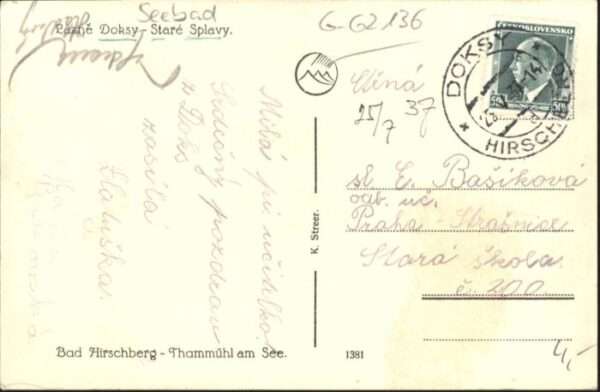 Seebad
Lázně Doksy - Staré Splavy.
G-G2 136
ČESKOSLOVENSKO
DOKSY
HIRSCHBERG
25/7 37
Milá pí učitelko!
Srdečný pozdrav
z Doks
zasílá
sl. E. Bašíková
odb. uč.
Praha - Strašnice
Stará škola
č. 200
K. Streer.
Bad Hirschberg - Thammühl am See.
1381
4,-